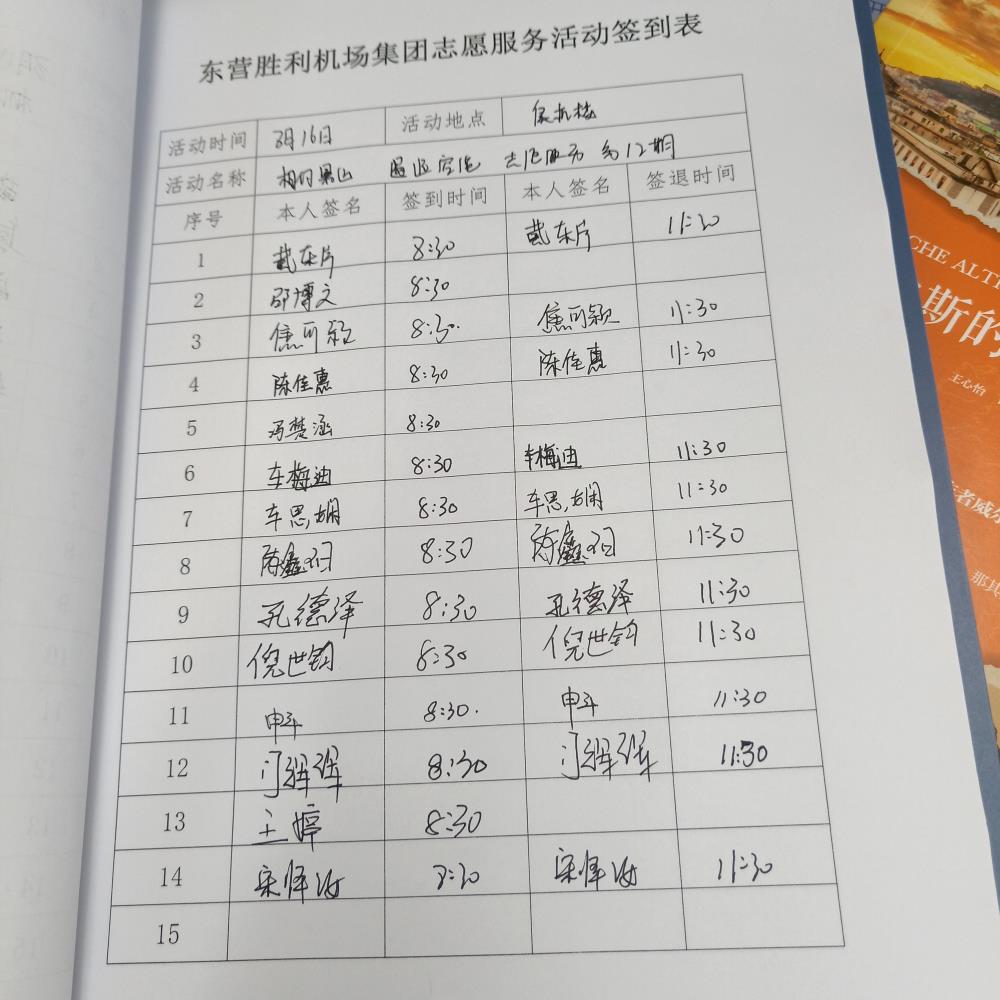 东营胜利机场集团志愿服务活动签到表
活动时间 3月16日 活动地点 候机楼
活动名称 志愿服务 第12期
序号 本人签名 签到时间 本人签名 签退时间
1 8:30 11:30
2 邵博文 8:30
3 焦可颖 8:30. 焦可颖 11:30
4 陈佳惠 8:30 陈佳惠 11:30
5 冯楚涵 8:30
6 车梅迪 8:30 车梅迪 11:30
7 车思娴 8:30 车思娴 11:30
8 8:30 11:30
9 孔德泽 8:30 孔德泽 11:30
10 倪世钧 8:30 倪世钧 11:30
11 申斗 8:30. 申斗 11:30
12 8:30 11:30
13 王婷 8:30
14 11:30
15
CHE ALT
斯的
王心怡
者威尔
那其